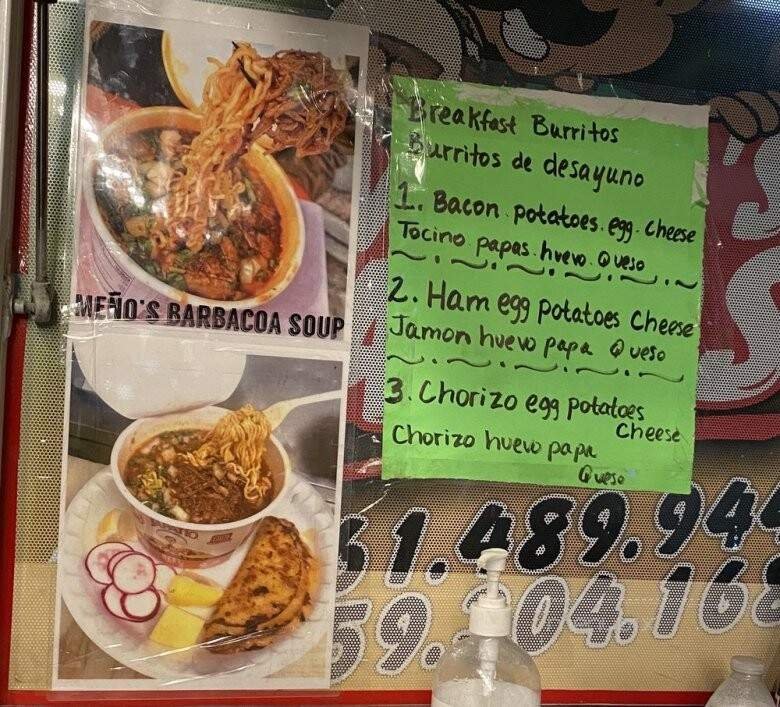 MEÑO'S BARBACOA SOUP
Breakfast Burritos
Burritos de desayuno
1. Bacon. potatoes. egg. cheese
Tocino papas. huevo. Queso
2. Ham egg potatoes Cheese
Jamon huevo papa Queso
3. Chorizo egg potatoes
Cheese
Chorizo huevo papa
Queso
61.489.944
59.204.168